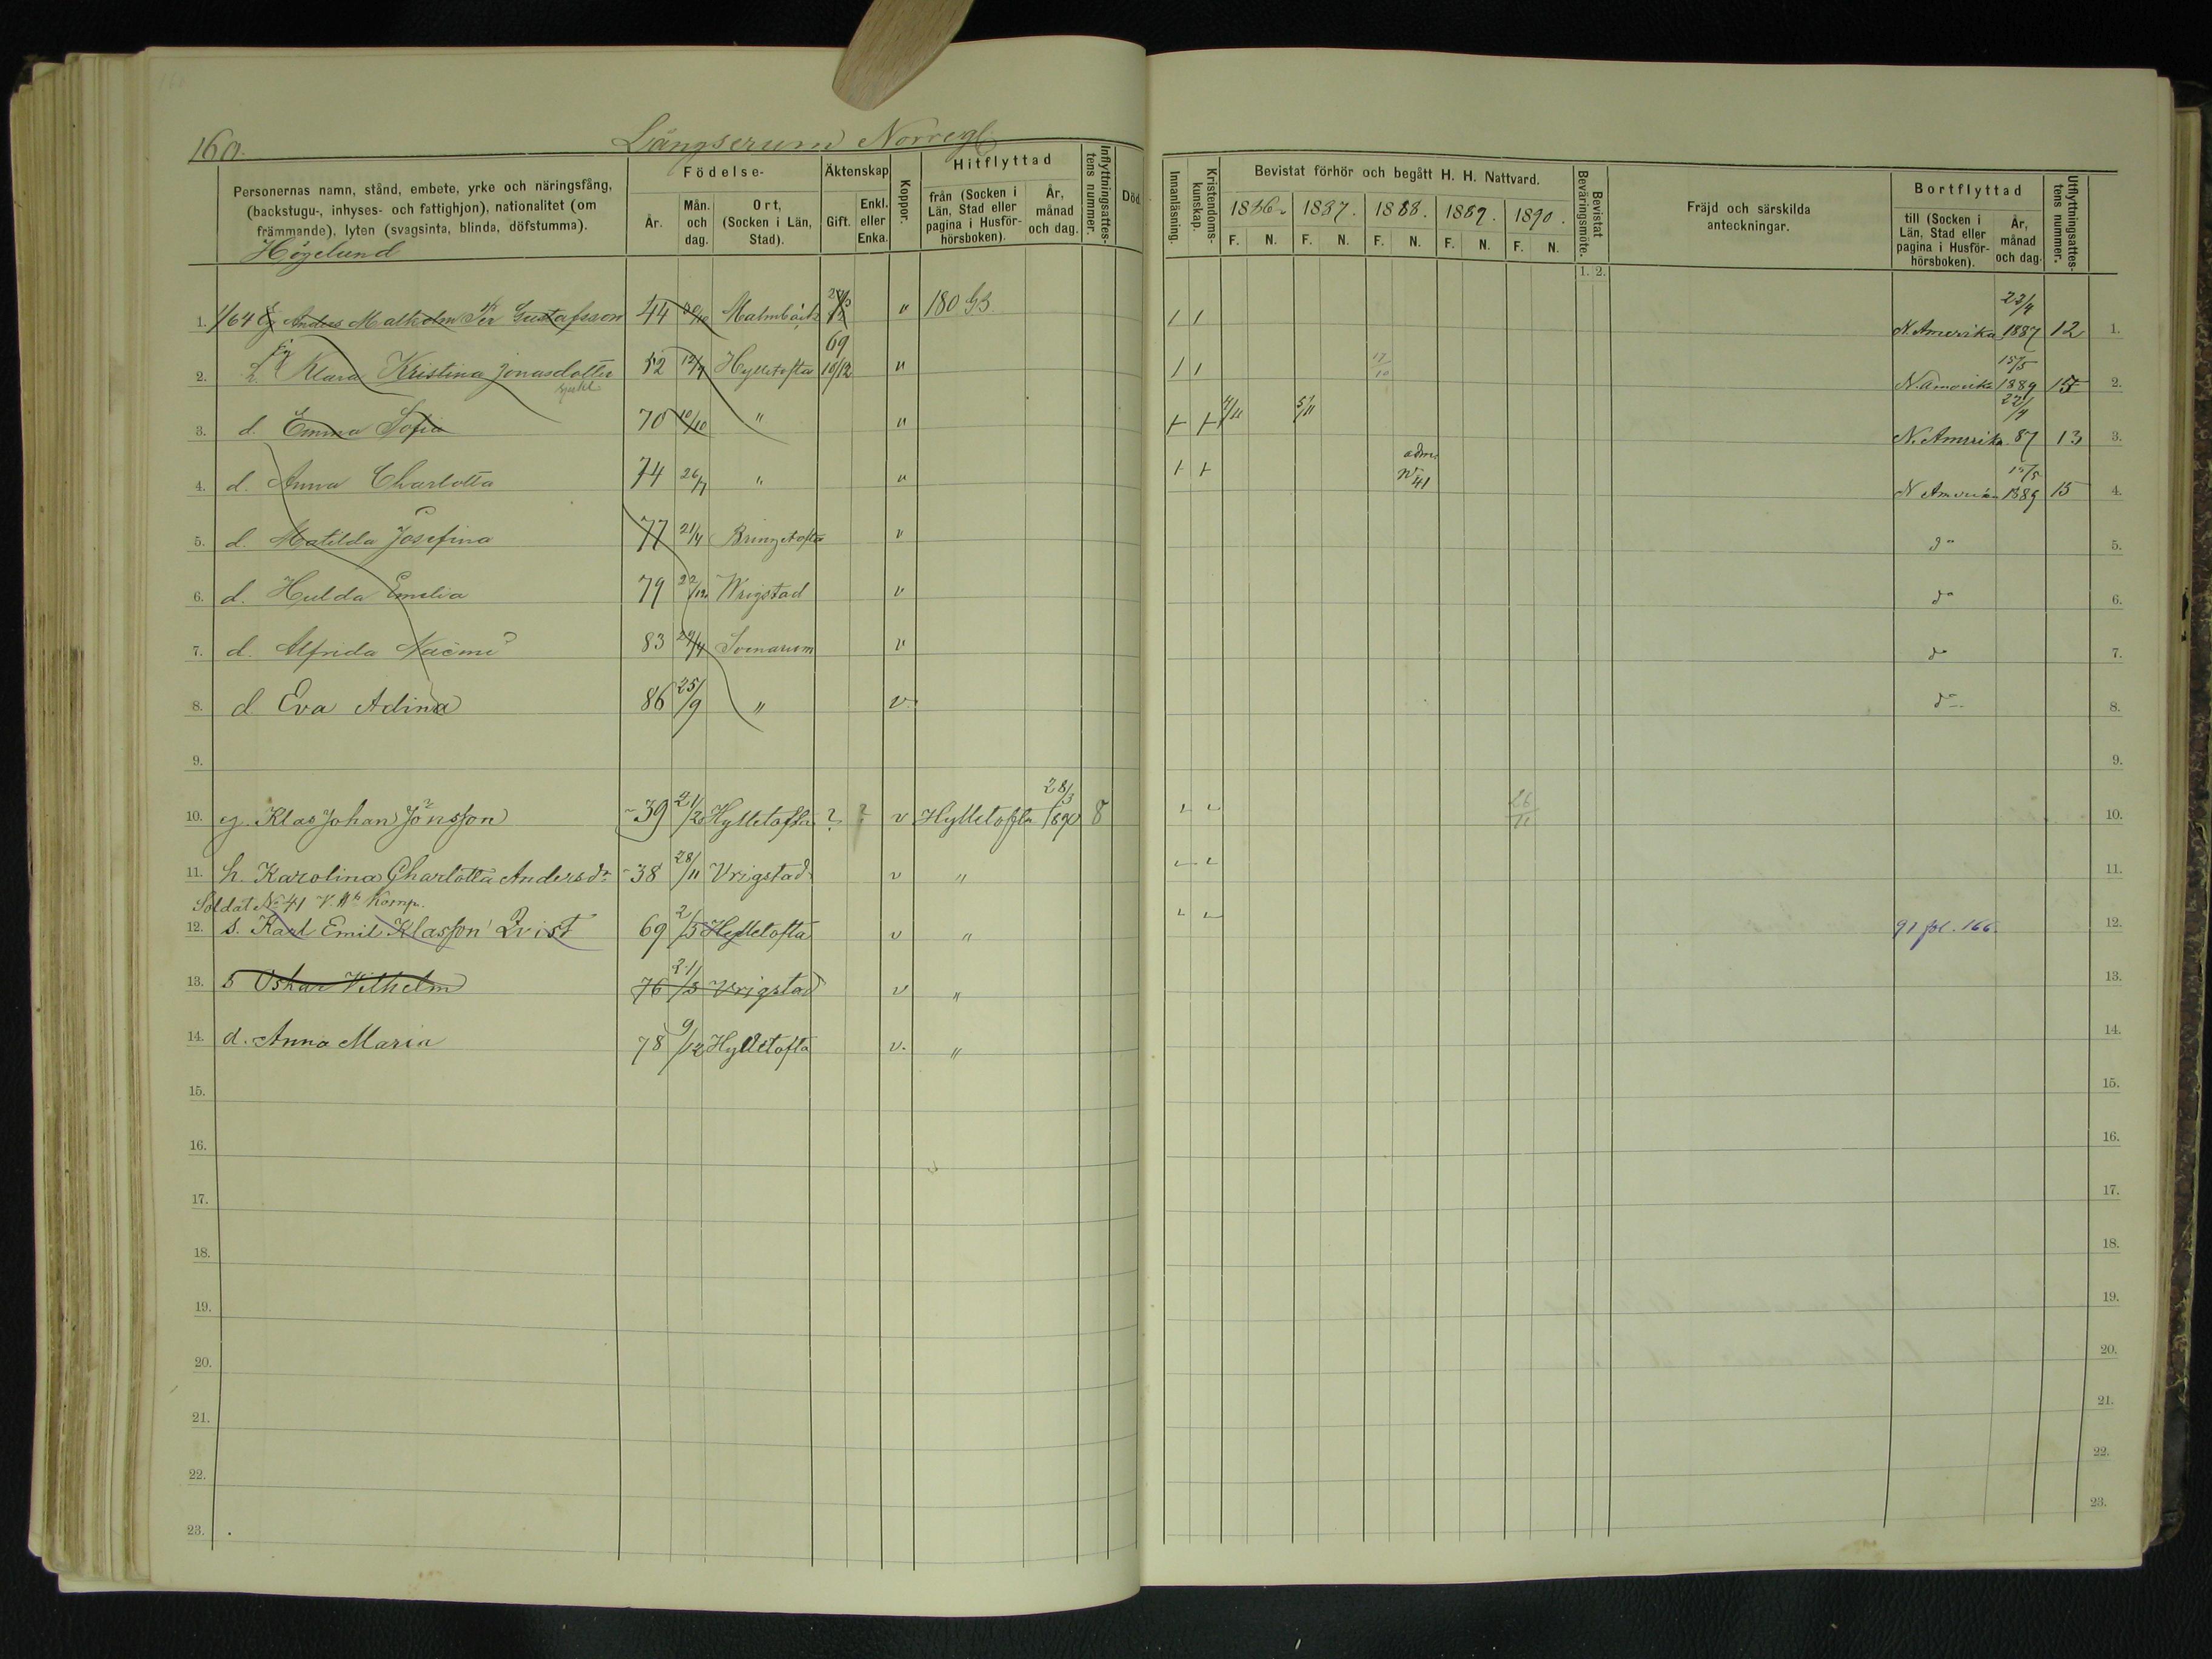 160.
Långserum Norreg.
Personernas namn, stånd, embete, yrke och näringsfång, (backstugu-, inhyses- och fattighjon), nationalitet (om främmande), lyten (svagsinta, blinda, döfstumma).
Födelse- År. Mån. och dag. Ort, (Socken i Län, Stad).
Äktenskap Gift. Enkl. eller Enka.
Koppor.
Hitflyttad från (Socken i Län, Stad eller pagina i Husförhörsboken). År, månad och dag.
Inflyttningsattestens nummer.
Död.
Innanläsning.
Kristendomskunskap.
Bevistat förhör och begått H. H. Nattvard.
1886. 1887. 1888. 1889. 1890.
F. N. F. N. F. N. F. N. F. N.
Bevistat Beväringsmöte. 1. 2.
Fräjd och särskilda anteckningar.
Bortflyttad till (Socken i Län, Stad eller pagina i Husförhörsboken). År, månad och dag.
Utflyttningsattestens nummer.
Högelund
1. 1/64 Eg Anders Malkolm Per Gustafsson 44 Malmbäck " 180 N. Amerika 23/4 1887 12 1.
2. h. Klara Kristina Jonasdotter 52 12/7 Hylletofta 69 10/12 " 17/10 N. Amerika 15/5 1889 15 2.
3. d. Emma Sofia 70 10/10 " " 5/11 N. Amerika 87 13 3.
4. d. Anna Charlotta 74 26/7 " " adm. N 41 N Amerika 15/5 1889 15 4.
5. d. Matilda Josefina 77 21/4 Bringetofta v do 5.
6. d. Hulda Emilia 79 22/12 Wrigstad v do 6.
7. d. Alfrida Naëmi 83 Svenarum v do 7.
8. d Eva Adina 86 25/9 " v do 8.
9. 9.
10. eg. Klas Johan Jönsson 39 Hylletofta ? ? v Hylletofta 28/3 1890 8 26/11 10.
11. h. Karolina Charlotta Andersdr 38 28/11 Vrigstad v " 11.
Soldat No 41 V. Komp.
12. s. Karl Emil Klasson Qvist 69 2/5 Hylletofta v " 91 pl. 166. 12.
13. s Oskar Vilhelm 76 21/3 Vrigstad v " 13.
14. d. Anna Maria 78 9/12 Hylletofta v. " 14.
15. 15.
16. 16.
17. 17.
18. 18.
19. 19.
20. 20.
21. 21.
22. 22.
23. 23.